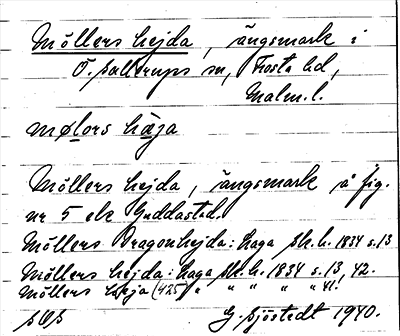 Möllers hejda, ängsmark i
Ö. Sallerups sn, Frosta hd,
Malm. l.
mølors hæja
Möllers hejda, ängsmark å fig.
nr 5 el Guddastad.
Möllers Dragonhejda: haga sk.h. 1834 s. 13
Möllers hejda: haga sk.h. 1834 s. 13, 42.
Möllers heja (425) " " " " 41.
G. Sjöstedt 1940.